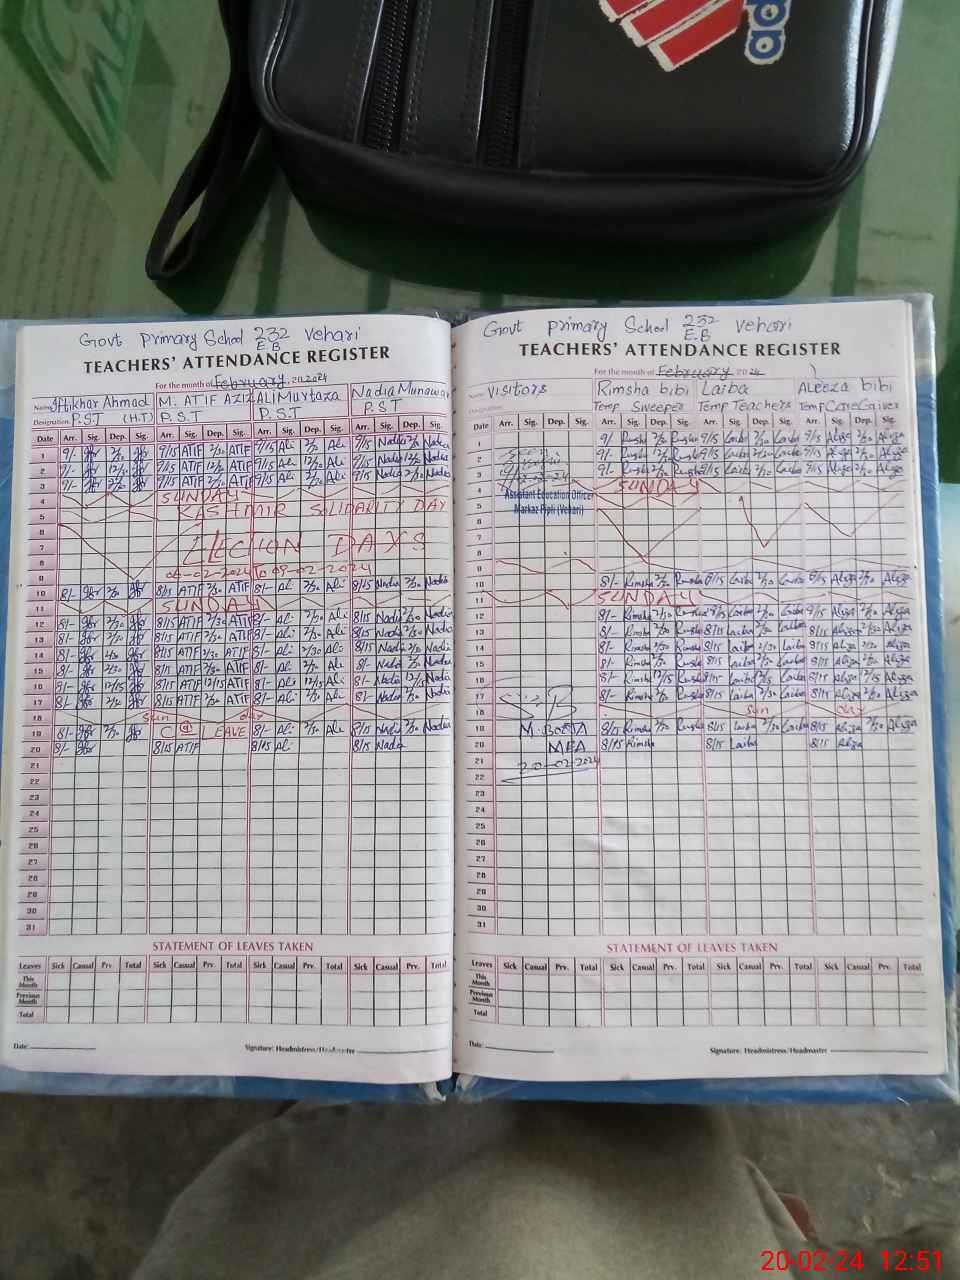 Govt Primary School 232 Vehari
E.B
TEACHERS' ATTENDANCE REGISTER
For the month of February 2024
Name Iftikhar Ahmad M. ATIF AZIZ ALI Murtaza Nadia Munawar
Designation P.S.T (H.T) P.S.T P.S.T P.S.T
Date Arr. Sig. Dep. Sig. Arr. Sig. Dep. Sig. Arr. Sig. Dep. Sig. Arr. Sig. Dep. Sig.
1 9/- 2/30 9/15 ATIF 2/30 ATIF 9/15 Ali 2/30 Ali 9/15 Nadia 2/30 Nadia
2 9/- 12/30 9/15 ATIF 12/30 ATIF 9/15 Ali 12/30 Ali 9/15 Nadia 12/30 Nadia
3 9/- 2/30 9/15 ATIF 2/30 ATIF 9/15 Ali 2/30 Ali 9/15 Nadia 2/30 Nadia
4 SUNDAY
5 KASHMIR SOLIDARITY DAY
6
7 ELECTION DAYS
8 06-02-2024 To 09-02-2024
9
10 8/- 2/30 8/15 ATIF 2/30 ATIF 8/- Ali 2/30 Ali 8/15 Nadia 2/30 Nadia
11 SUNDAY
12 8/- 2/30 8/15 ATIF 2/30 ATIF 8/- Ali 2/30 Ali 8/15 Nadia 2/30 Nadia
13 8/- 2/30 8/15 ATIF 2/30 ATIF 8/- Ali 2/30 Ali 8/15 Nadia 2/30 Nadia
14 8/- 8/15 ATIF 2/30 ATIF 8/- Ali 2/30 Ali 8/15 Nadia 2/30 Nadia
15 8/- 2/30 8/15 ATIF 2/30 ATIF 8/- Ali 2/30 Ali 8/- Nadia 2/30 Nadia
16 8/- 12/15 8/15 ATIF 12/15 ATIF 8/- Ali 12/15 Ali 8/- Nadia 12/15 Nadia
17 8/- 2/30 8/15 ATIF 2/30 ATIF 8/- Ali 2/30 Ali 8/- Nadia 2/30 Nadia
18 Sun day
19 8/- 2/30 C LEAVE 8/- Ali 2/30 Ali 8/15 Nadia 2/30 Nadia
20 8/- 8/15 ATIF 8/15 Ali 8/15 Nadia
21
22
23
24
25
26
27
28
29
30
31
STATEMENT OF LEAVES TAKEN
Leaves Sick Casual Prv. Total Sick Casual Prv. Total Sick Casual Prv. Total
This Month
Previous Month
Total
Date: Signature: Headmistress/Headmaster
Govt Primary School 232 Vehari
E.B
TEACHERS' ATTENDANCE REGISTER
For the month of February 2024
Name VISITORS Rimsha bibi Laiba ALeeza bibi
Designation Temp Sweeper Temp Teachers Temp CareGaiver
Date Arr. Sig. Dep. Sig. Arr. Sig. Dep. Sig. Arr. Sig. Dep. Sig. Arr. Sig. Dep. Sig.
1 9/- 2/30 9/15 Laiba 2/30 Laiba 9/15 Aliza 2/30 Aliza
2 9/- 12/30 9/15 Laiba 12/30 Laiba 9/15 Aliza 12/30 Aliza
3 9/- 2/30 9/15 Laiba 2/30 Laiba 9/15 Aliza 2/30 Aliza
4 SUNDAY
Assistant Education Officer
5 Markaz Pipli (Vehari)
6
7
8
9
10 8/- Rimsha 2/30 Rimsha 8/15 Laiba 2/30 Laiba 8/15 Aliza 2/30 Aliza
11 SUNDAY
12 8/- Rimsha 2/30 Rimsha 8/15 Laiba 2/30 Laiba 8/15 Aliza 2/30 Aliza
13 8/- Rimsha 2/30 Rimsha 8/15 Laiba 2/30 Laiba 8/15 Aliza 2/30 Aliza
14 8/- Rimsha 2/30 Rimsha 8/15 Laiba 2/30 Laiba 8/15 Aliza 2/30 Aliza
15 8/- Rimsha 2/30 Rimsha 8/15 Laiba 2/30 Laiba 8/15 Aliza 2/30 Aliza
16 8/- Rimsha Rimsha 8/15 Laiba Laiba 8/15 Aliza Aliza
17 8/- Rimsha 2/30 Rimsha 8/15 Laiba 2/30 Laiba 8/15 Aliza 2/30 Aliza
18 Sun day
19 M. BOOTA 8/15 Rimsha 2/30 Rimsha 8/15 Laiba 2/30 Laiba 8/15 Aliza 2/30 Aliza
20 MEA 8/15 Rimsha 8/15 Laiba 8/15 Aliza
21 20-02-2024
22
23
24
25
26
27
28
29
30
31
STATEMENT OF LEAVES TAKEN
Leaves Sick Casual Prv. Total Sick Casual Prv. Total Sick Casual Prv. Total Sick Casual Prv. Total
This Month
Previous Month
Total
Date: Signature: Headmistress/Headmaster
20-02-24 12:51